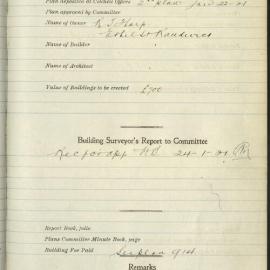 Plan deposited at Council Office 2nd plan Jan 22-21
Plan approved by Committee
Name of Owner R J Sharp
Ethel St Randwick
Name of Builder
Name of Architect
Value of Buildings to be erected £700
Building Surveyor's Report to Committee
Rec for app 24-1-21
Report Book, folio
Plans Committee Minute Book, page
Building Fee Paid See plan 914
Remarks